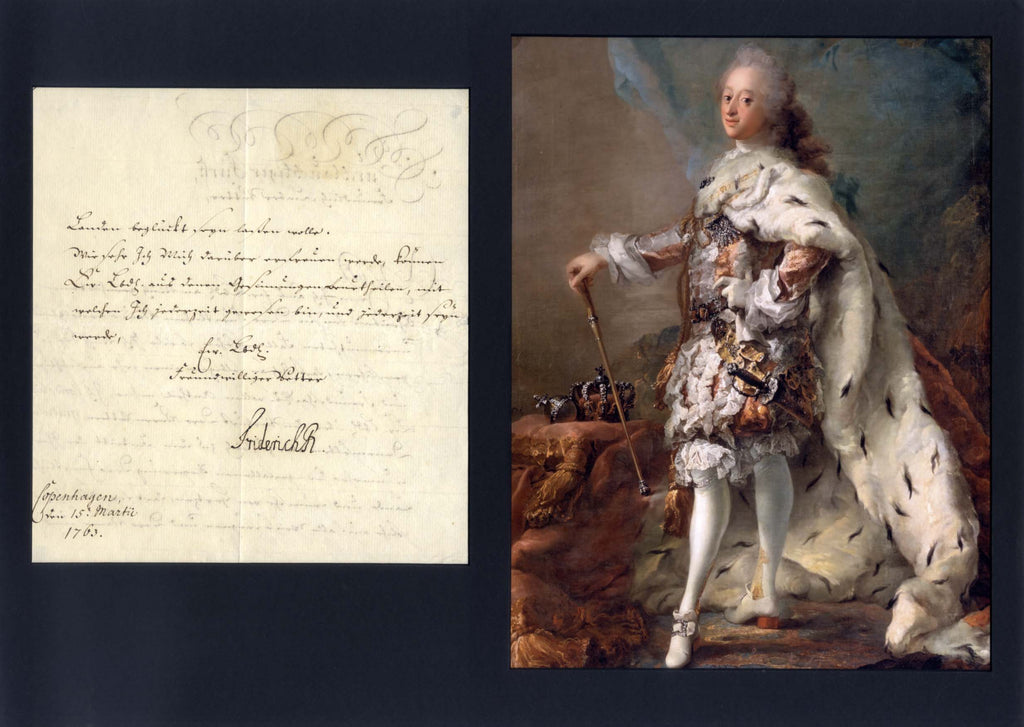 Landen beglückt seyn laßen wolle.
Wie sehr Ich Mich darüber erfreuen werde, können
Ew. Lbd. aus denen Gesinnungen beurtheilen, mit
welchen Ich jederzeit gewesen bin, und jederzeit seyn
werde,
Ew. Lbd.
Freundwilliger Vetter
Friderich R
Copenhagen,
den 15. Martii
1763.